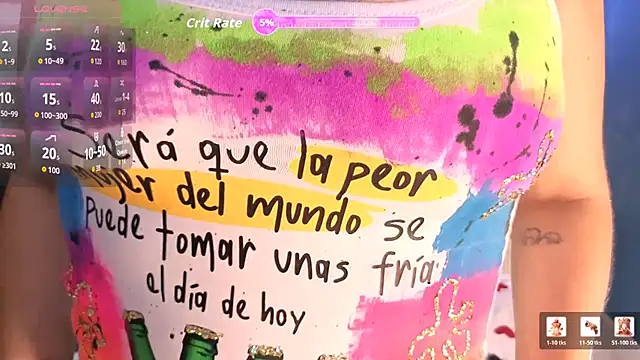 LOVENSE
Crit Rate 5%
2s 5s 22 30
1~9 10~49 120 163
10s 15s 40
50~99 100~300 230
30s 20s 10-50
≥301 100
Será que la peor
mujer del mundo se
puede tomar unas fría
el día de hoy
1-10 tks 11-50 tks 51-100 tks